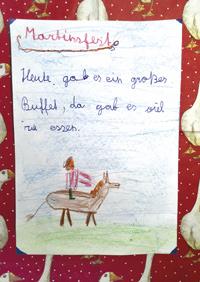 Martinsfest
Heute gab es ein großes
Buffet, da gab es viel
zu essen.